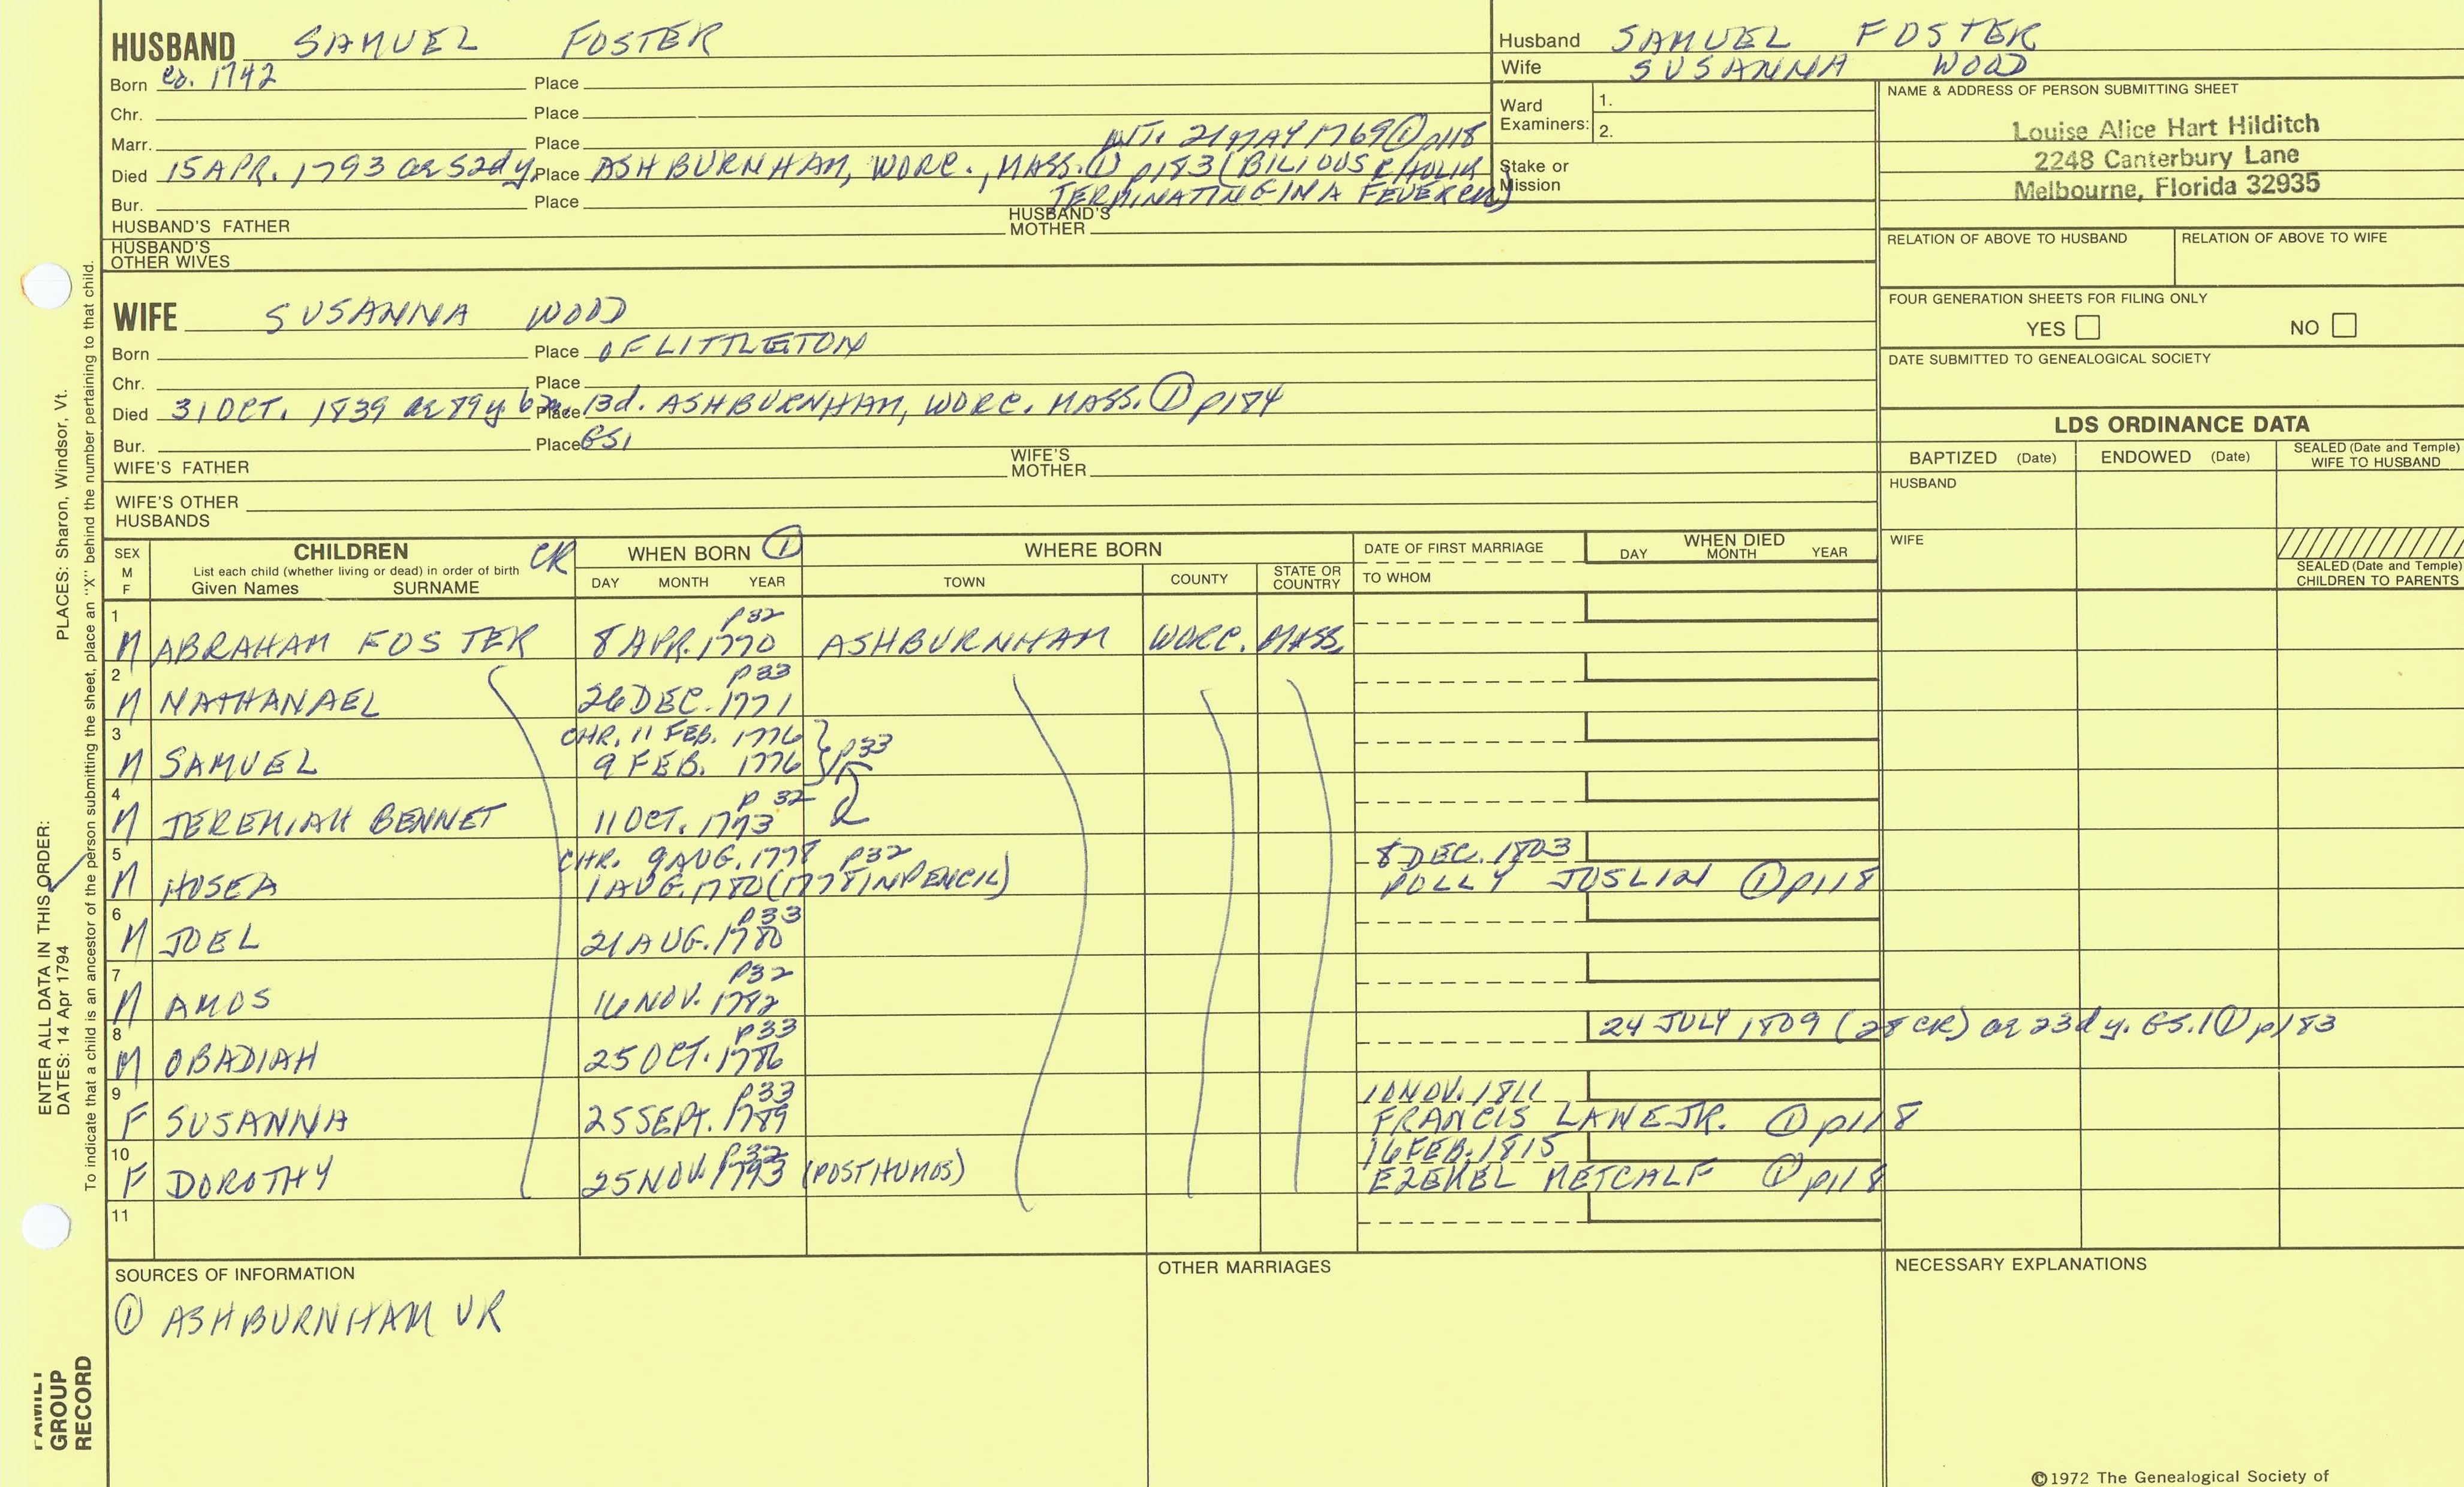 HUSBAND SAMUEL FOSTER
Born ca. 1742 Place
Chr. Place
Marr. Place INT. 21 MAY 1769 ① p118
Died 15 APR. 1793 ae 52d y. Place ASHBURNHAM, WORC., MASS. ① p183 (BILIOUS CHOLIK
TERMINATING IN A FEVER CR)
Bur. Place
HUSBAND'S FATHER HUSBAND'S MOTHER
HUSBAND'S OTHER WIVES
Husband SAMUEL FOSTER
Wife SUSANNA WOOD
Ward Examiners: 1.
2.
Stake or Mission
NAME & ADDRESS OF PERSON SUBMITTING SHEET
Louise Alice Hart Hilditch
2248 Canterbury Lane
Melbourne, Florida 32935
RELATION OF ABOVE TO HUSBAND RELATION OF ABOVE TO WIFE
FOUR GENERATION SHEETS FOR FILING ONLY
YES NO
DATE SUBMITTED TO GENEALOGICAL SOCIETY
WIFE SUSANNA WOOD
Born Place OF LITTLETON
Chr. Place
Died 31 OCT. 1839 ae 89 y. 6 m. Place 13d. ASHBURNHAM, WORC. MASS. ① p184
Bur. Place GS1
WIFE'S FATHER WIFE'S MOTHER
WIFE'S OTHER HUSBANDS
LDS ORDINANCE DATA
BAPTIZED (Date) ENDOWED (Date) SEALED (Date and Temple) WIFE TO HUSBAND
HUSBAND
WIFE
SEALED (Date and Temple) CHILDREN TO PARENTS
SEX M F CHILDREN CR
List each child (whether living or dead) in order of birth
Given Names SURNAME
WHEN BORN ①
DAY MONTH YEAR
WHERE BORN
TOWN COUNTY STATE OR COUNTRY
DATE OF FIRST MARRIAGE
TO WHOM
WHEN DIED
DAY MONTH YEAR
p32
1 M ABRAHAM FOSTER 8 APR. 1770 ASHBURNHAM WORC. MASS.
p33
2 M NATHANAEL 26 DEC. 1771
CHR. 11 FEB. 1776
3 M SAMUEL 9 FEB. 1776 p33
p 32
4 M JEREMIAH BENNET 11 OCT. 1773
CHR. 9 AUG. 1778 p32 8 DEC. 1803
5 M HOSEA 1 AUG. 1780 (1778 IN PENCIL) POLLY JOSLIN ① p118
p33
6 M JOEL 21 AUG. 1780
p32
7 M AMOS 16 NOV. 1782
p33 24 JULY 1809 (28 CR) ae 23d y. GS.1 ① p183
8 M OBADIAH 25 OCT. 1786
p33 10 NOV. 1811
9 F SUSANNA 25 SEPT. 1789 FRANCIS LANE JR. ① p118
p32 16 FEB. 1815
10 F DOROTHY 25 NOV. 1793 (POSTHUMOS) EZEKEL METCALF ① p118
11
SOURCES OF INFORMATION
① ASHBURNHAM VR
OTHER MARRIAGES
NECESSARY EXPLANATIONS
©1972 The Genealogical Society of
ENTER ALL DATA IN THIS ORDER:
DATES: 14 Apr 1794 PLACES: Sharon, Windsor, Vt.
To indicate that a child is an ancestor of the person submitting the sheet, place an "X" behind the number pertaining to that child.
FAMILY
GROUP
RECORD